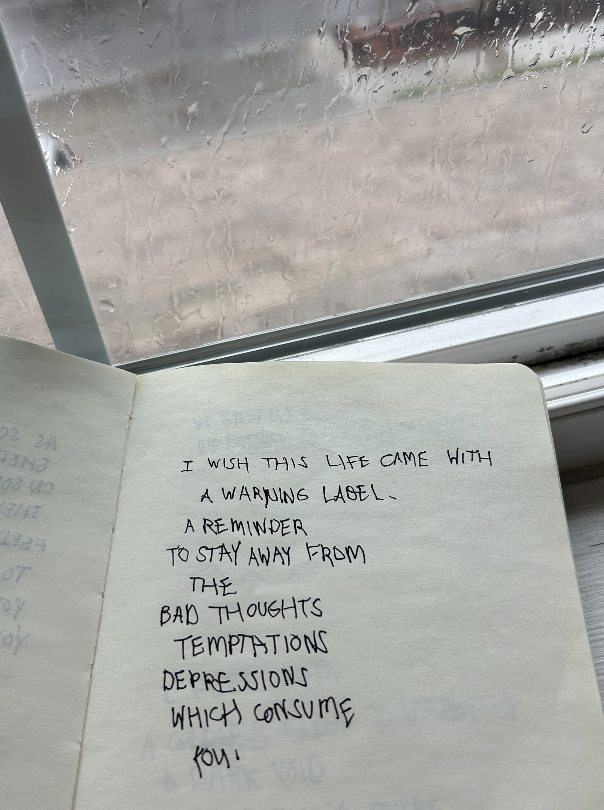 I WISH THIS LIFE CAME WITH
A WARNING LABEL.
A REMINDER
TO STAY AWAY FROM
THE
BAD THOUGHTS
TEMPTATIONS
DEPRESSIONS
WHICH CONSUME
YOU.